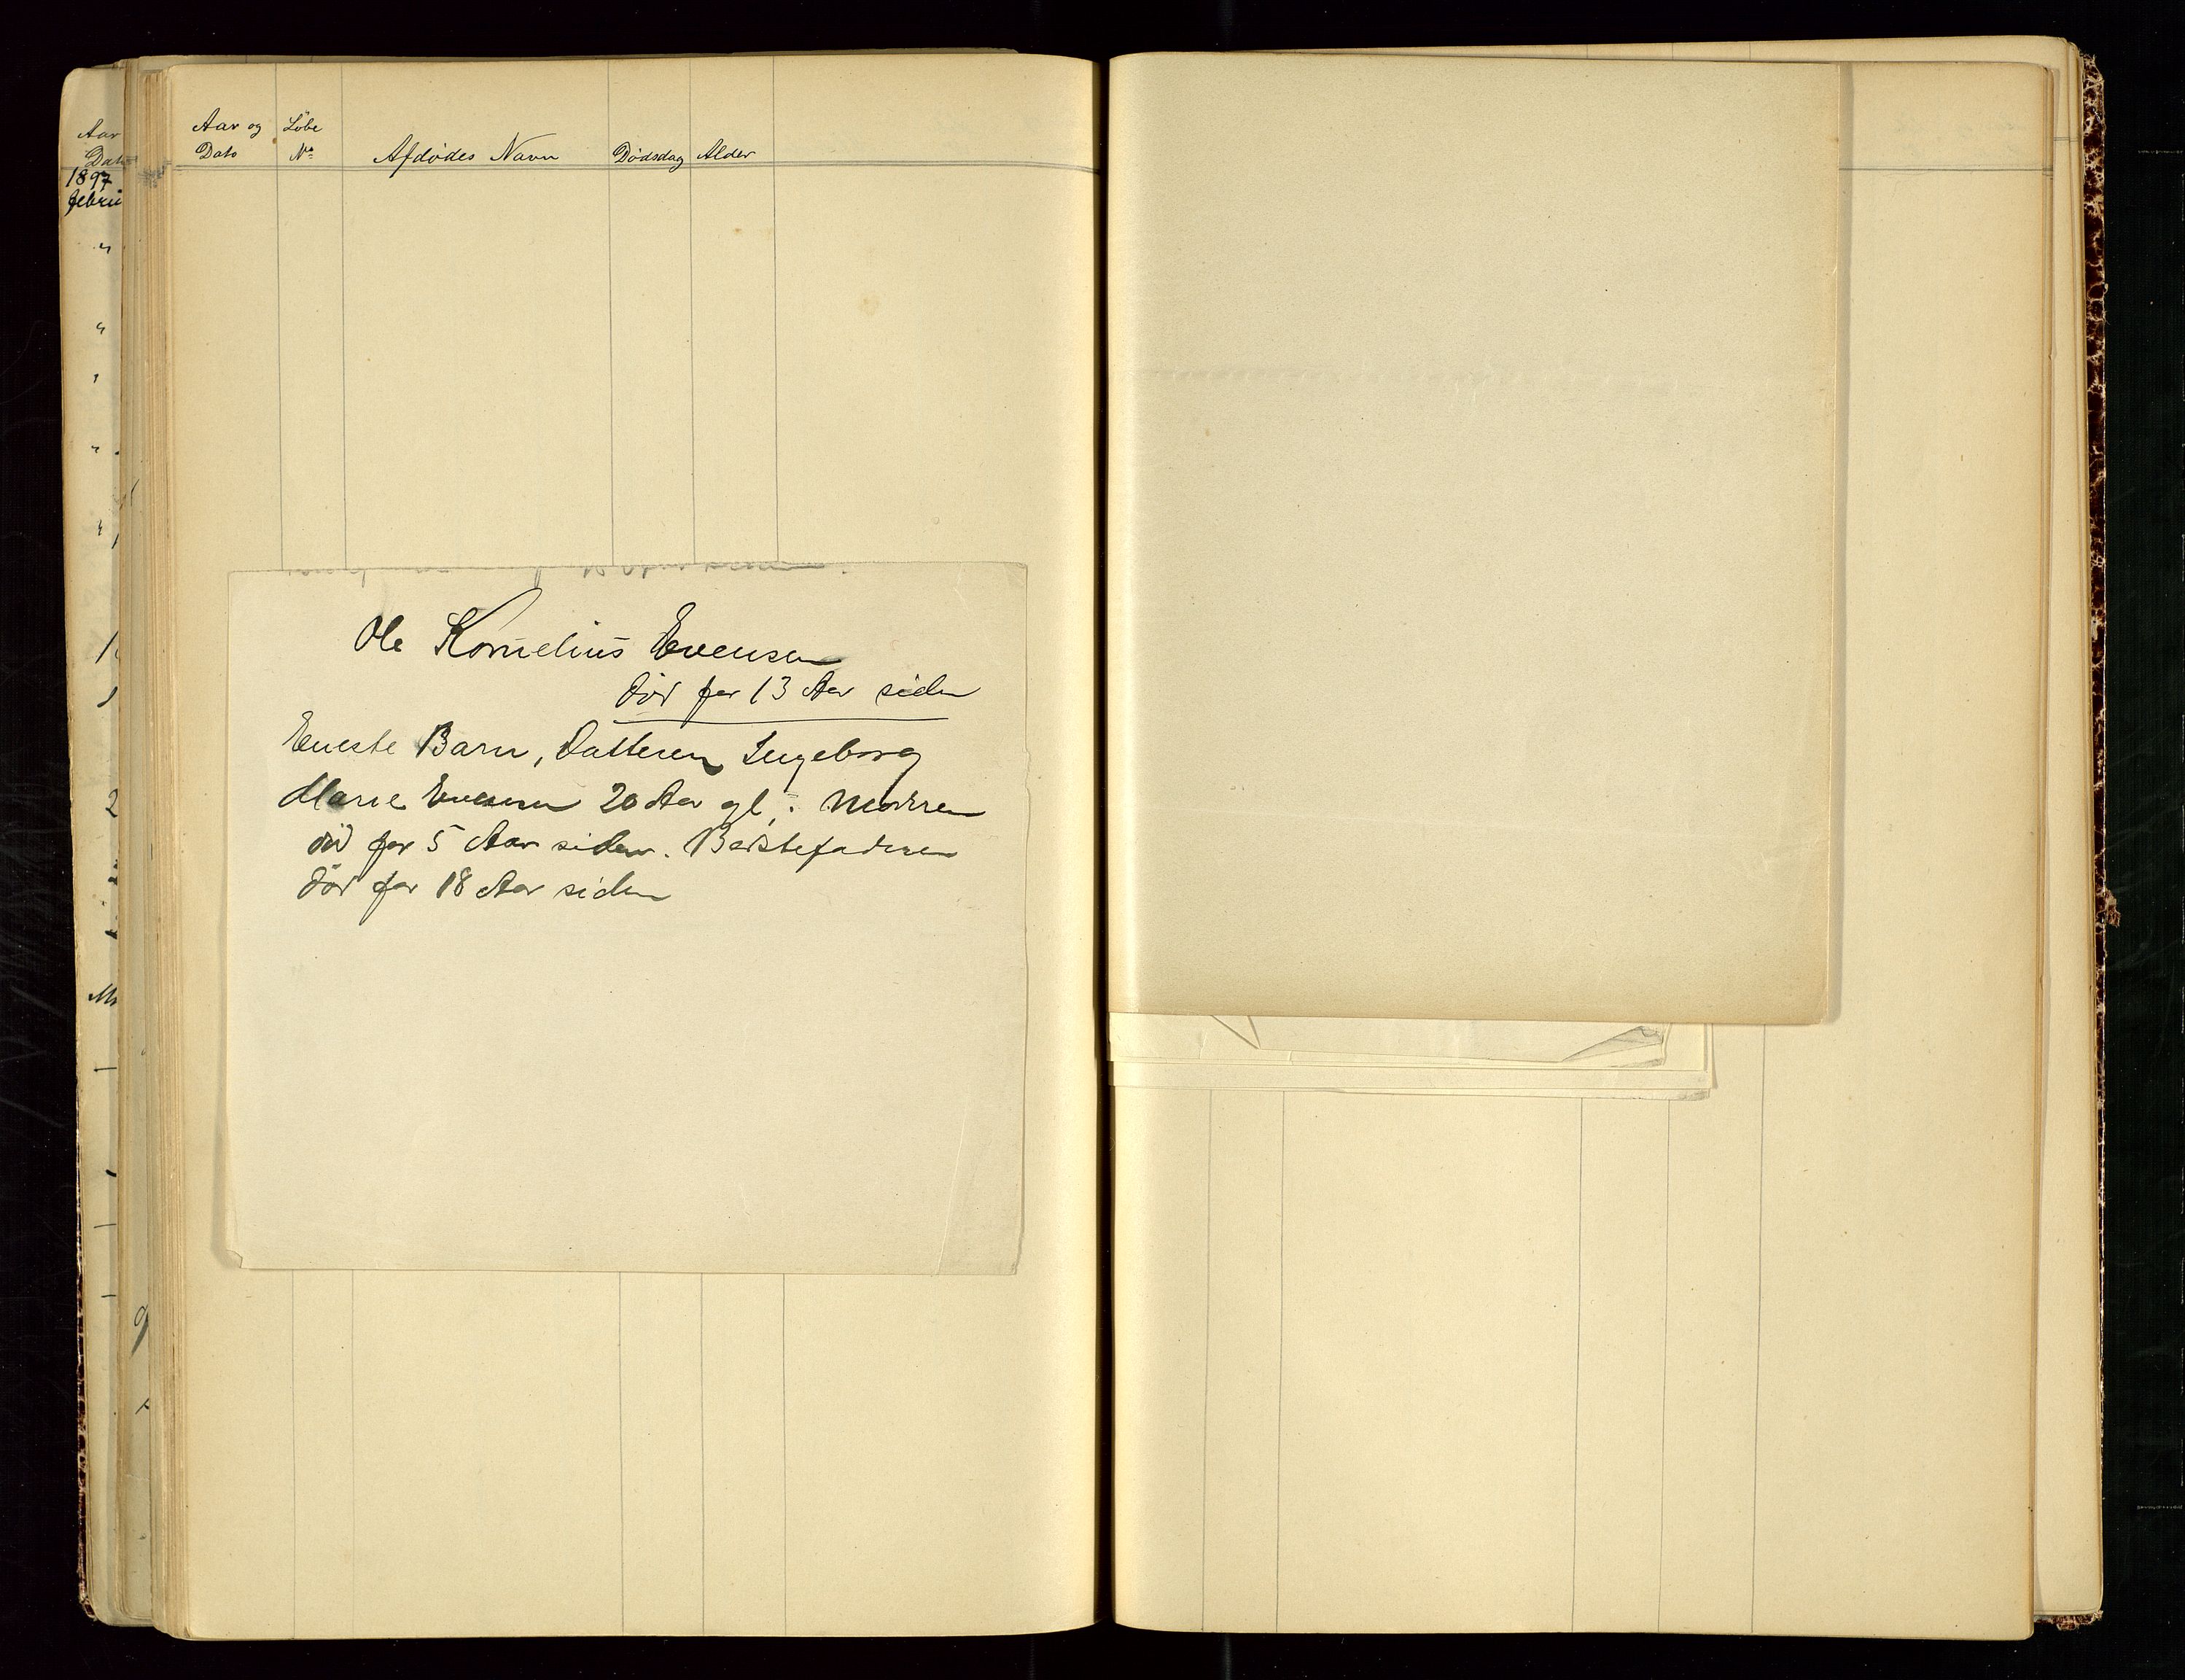 Aar
Dat
1897
febru
Aar og Löbe
Dato No Afdödes Navn Dödsdag Alder
Ole Kornelius Evensen
död for 13 Aar siden
Eneste Barn, Datteren Ingeborg
Marie Evensen 20 Aar gl. Modren
död for 5 Aar siden. Bedstefadren
död for 18 Aar siden